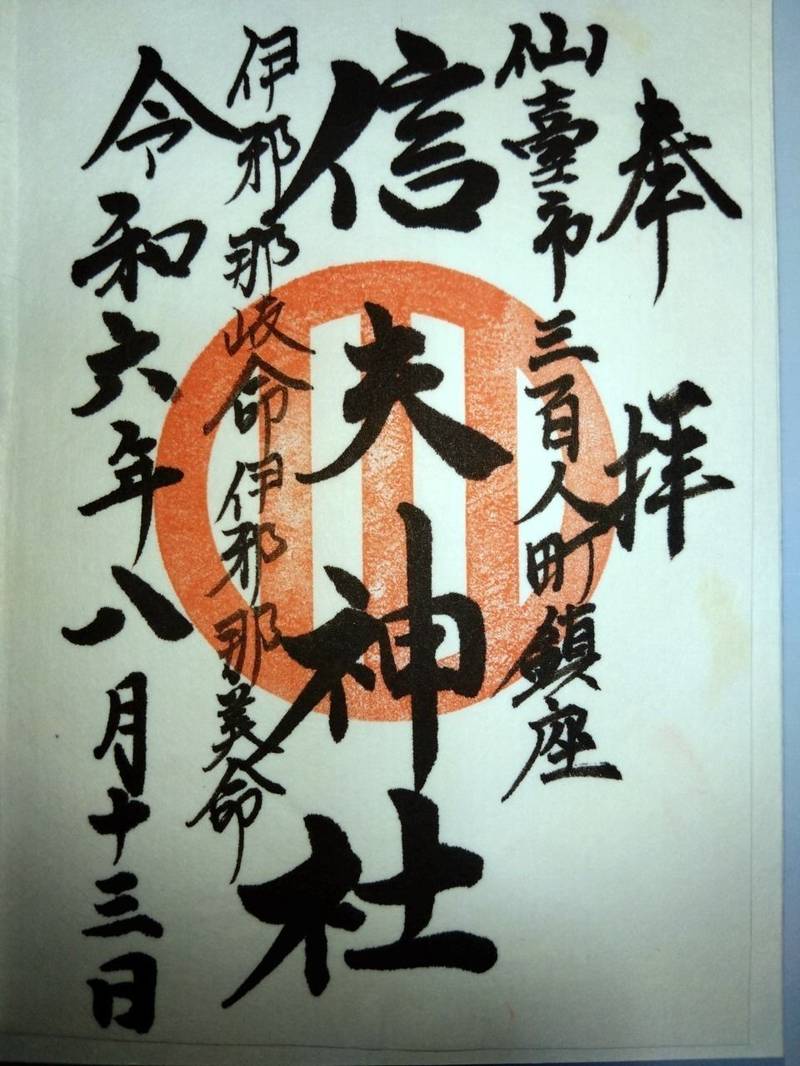 奉拝
仙臺市三百人町鎮座
信夫神社
伊邪那岐命伊邪那美命
令和六年八月十三日